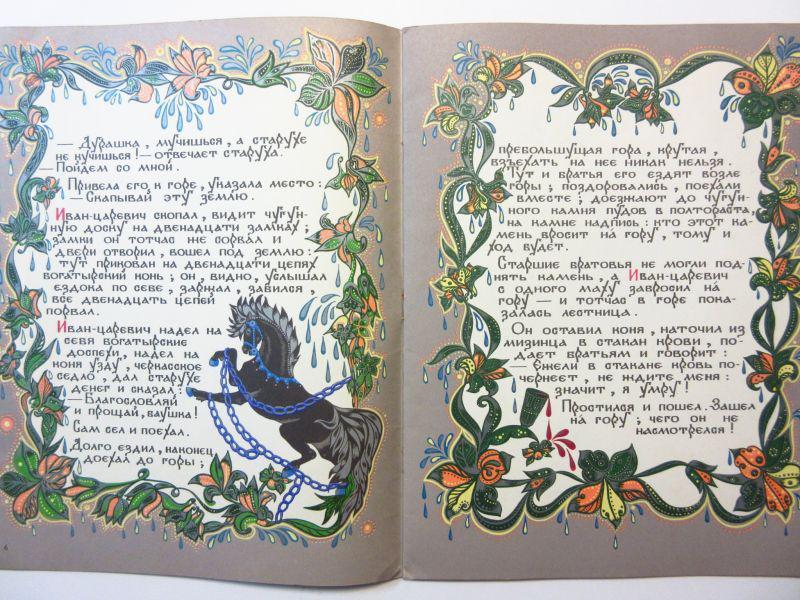 — Дурашка, мучишься, а старухе
не кучишься! — отвечает старуха.
— Пойдем со мной.
Привела его к горе, указала место:
— Скапывай эту землю.
Иван-царевич скопал, видит чугун-
ную доску на двенадцати замках;
замки он тотчас же сорвал и
двери отворил, вошел под землю:
тут прикован на двенадцати цепях
богатырский конь; он, видно, услышал
ездока по себе, заржал, забился,
все двенадцать цепей
порвал.
Иван-царевич надел на
себя богатырские
доспехи, надел на
коня узду, черкасское
седло, дал старухе
денег и сказал:
— Благословляй
и прощай, баушка!
Сам сел и поехал.
Долго ездил, наконец
доехал до горы;
6
пребольшущая гора, крутая,
взъехать на нее никак нельзя.
Тут и братья его ездят возле
горы; поздоровались, поехали
вместе; доезжают до чугун-
ного камня пудов в полтораста,
на камне надпись: кто этот ка-
мень бросит на гору, тому и
ход будет.
Старшие братовья не могли под-
нять камень, а Иван-царевич
с одного маху забросил на
гору — и тотчас в горе пока-
залась лестница.
Он оставил коня, наточил из
мизинца в стакан крови, по-
дает братьям и говорит:
— Ежели в стакане кровь по-
чернеет, не ждите меня:
значит, я умру!
Простился и пошел. Зашел
на гору; чего он не
насмотрелся!